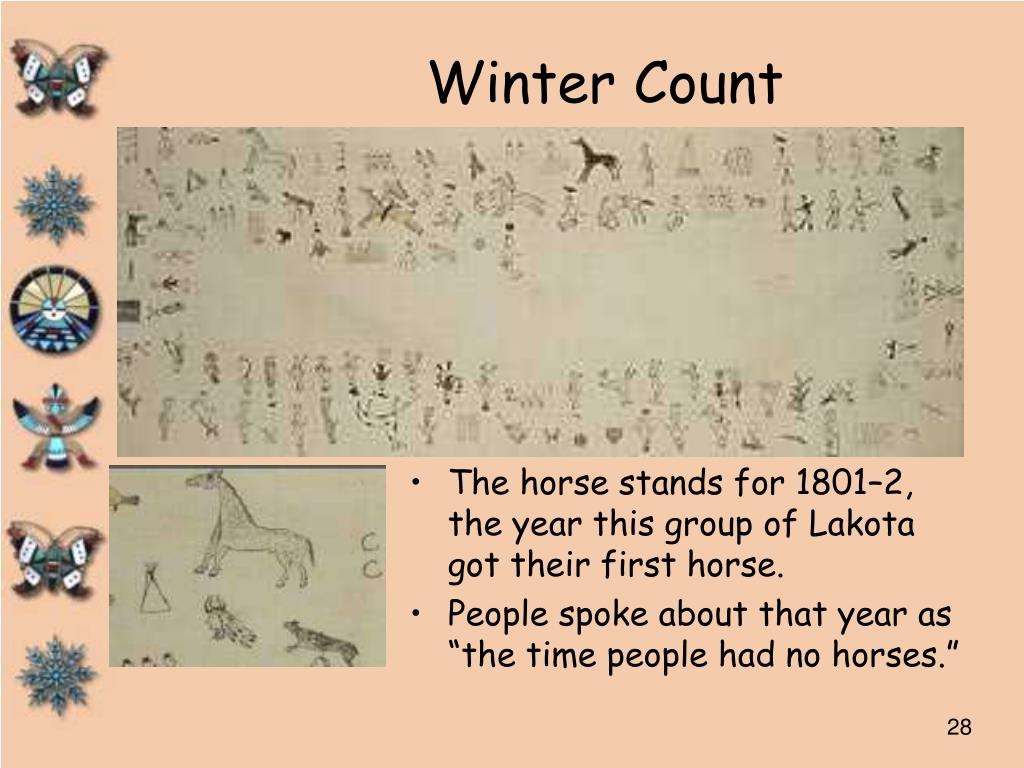 Winter Count
• The horse stands for 1801–2,
the year this group of Lakota
got their first horse.
• People spoke about that year as
“the time people had no horses.”
28